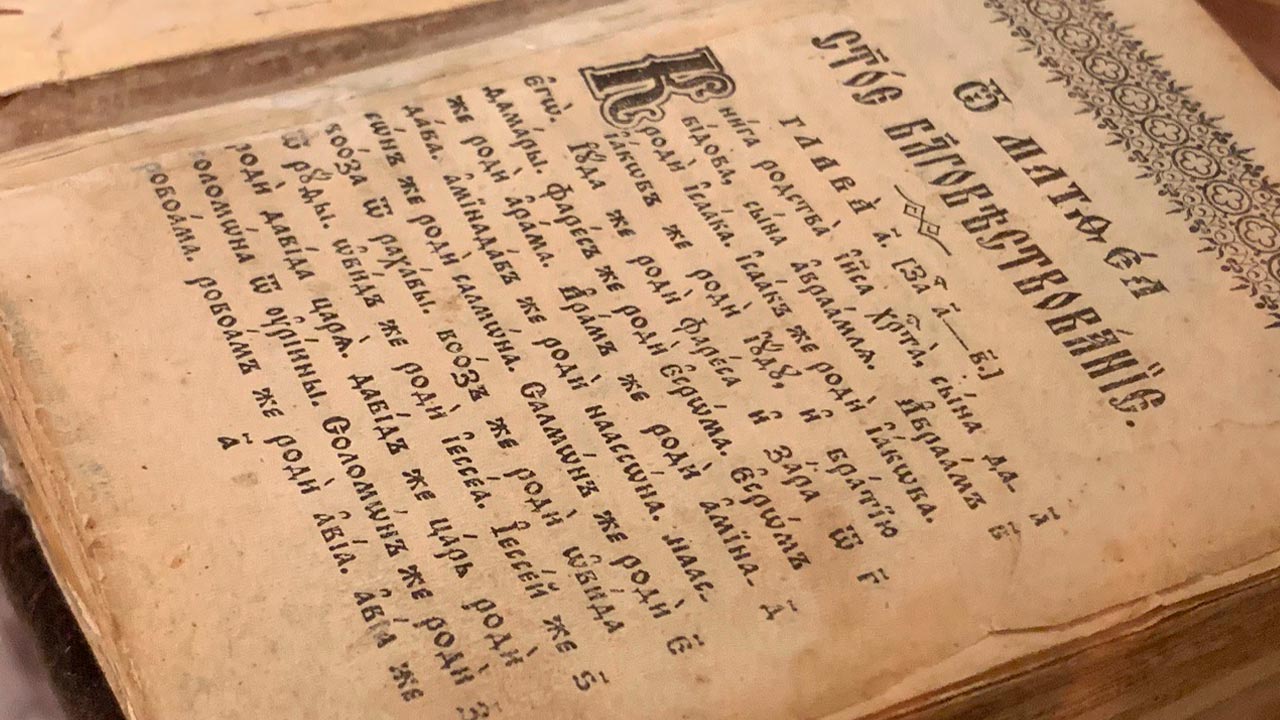 Ѿ МАТѲЕ́А
СТ҃О́Е БЛ҃ГОВѢСТВОВА́НЇЕ.
ГЛАВА̀ а҃. [За҃ а҃—в҃.]
Кни́га родства̀ і҆и҃са хрⷭ҇та̀, сы́на да- а҃
ві́дова, сы́на а҆враа́млѧ. А҆враа́мъ в҃
родѝ і҆саа́ка. і҆саа́къ же родѝ і҆а́кѡва.
і҆а́кѡвъ же родѝ і҆ꙋ́дꙋ, и҆ бра́тїю
є҆гѡ̀. І҆ꙋ́да же родѝ фаре́са и҆ за́ра ѿ г҃
дама́ры. фаре́съ же родѝ є҆срѡ́ма. Є҆срѡ́мъ
же родѝ а҆ра́ма. А҆ра́мъ же родѝ а҆мїна- д҃
да́ва. а҆мїнада́въ же родѝ наассѡ́на. Наас-
сѡ́нъ же родѝ салмѡ́на. Салмѡ́нъ же родѝ є҃
воо́за ѿ раха́вы. воо́зъ же родѝ ѡ҆ви́да
ѿ рꙋ́ды. ѡ҆ви́дъ же родѝ і҆ессе́а. І҆ессе́й же ѕ҃
родѝ даві́да царѧ̀. даві́дъ же ца́рь родѝ
соломѡ́на ѿ ᲂу҆рі́ины. Соломѡ́нъ же родѝ з҃
ровоа́ма. ровоа́мъ же родѝ а҆ві́а. а҆ві́а же
а҃